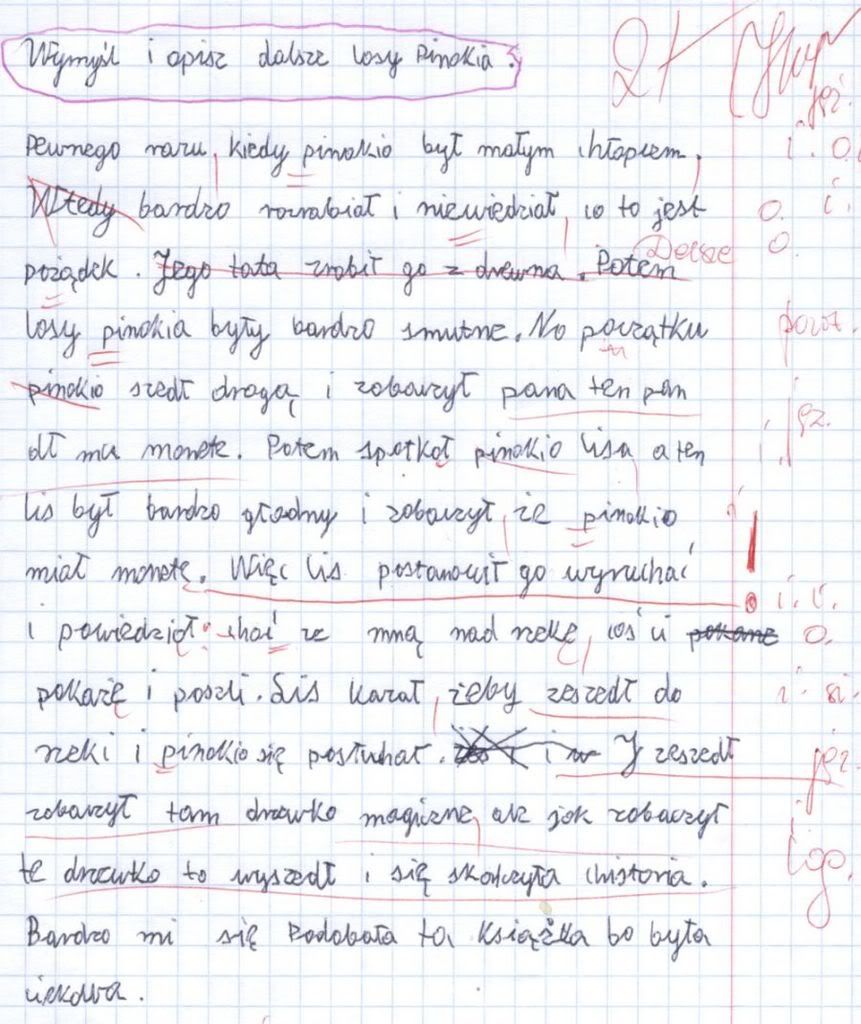 Wymyśl i opisz dalsze losy Pinokia.
2+
jęz.
Pewnego razu, kiedy pinokio był małym chłopcem.
i. o.
Wtedy bardzo rozrabiał i niewiedział, co to jest
o. i.
Dalsze
o.
pożądek. Jego tata zrobił go z drewna. Potem
losy pinokia były bardzo smutne. No początku
powt.
pinokio szedł drogą i zobaczył pana ten pan
dł mu monete. Potem spotkoł pinokio lisa a ten
i. jęz.
lis był bardzo głodny i zobaczył, że pinokio
i
miał monetę. Więc lis postanowił go wyruchać
!
i powiedzioł: choć ze mną nad rzekę, coś ci pokane
i. i.
o.
pokażę i poszli. Lis kazał, żeby zeszedł do
rzeki i pinokio się posłuchał. i w I zeszedł
jęz.
zobaczył tam drzewko magiczne, ale jok zobaczył
i
te drzewko to wyszedł i się skończyła chistoria.
log.
Bardzo mi się Podobała ta książka bo była
ciekawa.